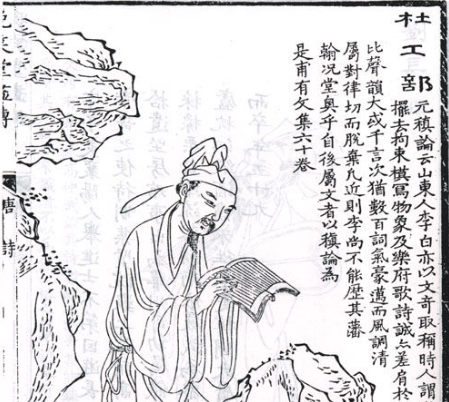 杜工部
元稹論云山東人李白亦以文奇取稱時人謂
擺去拘束模寫物象及樂府歌詩誠亦差肩於
比聲韻大或千言次猶數百詞氣豪邁而風調清
屬對律切而脫棄凡近則李尚不能歷其藩
翰况堂奧乎自後屬文者以稹論為
是甫有文集六十卷
堂畫傳
唐詩